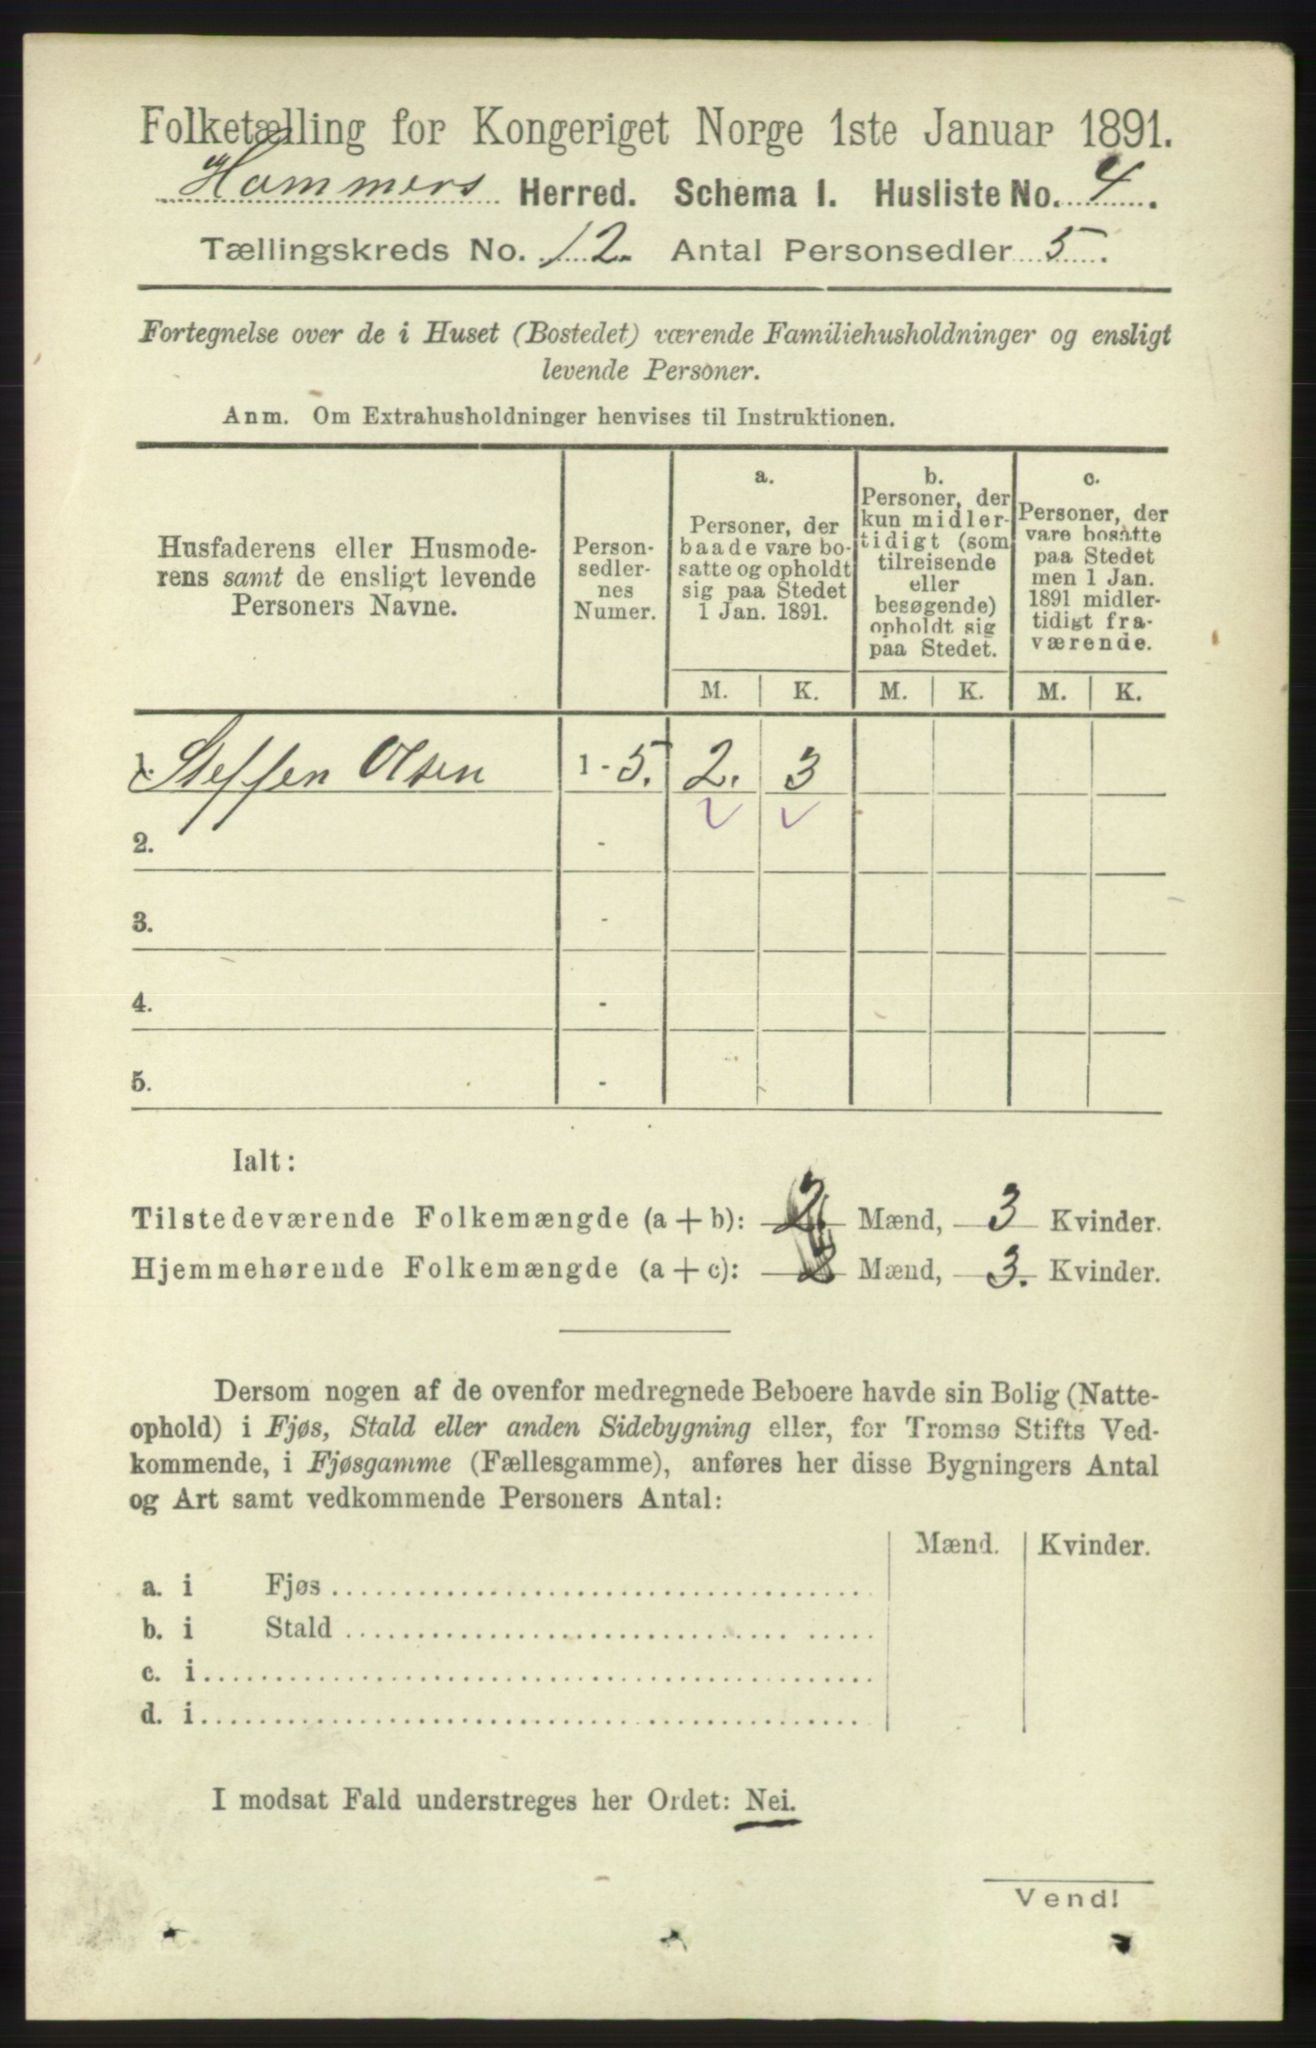 Folketælling for Kongeriget Norge 1ste Januar 1891.
Hammers Herred. Schema 1. Husliste No. 4.
Tællingskreds No. 12. Antal Personsedler 5.
Fortegnelse over de i Huset (Bostedet) værende Familiehusholdninger og ensligt
levende Personer.
Anm. Om Extrahusholdninger henvises til Instruktionen.
Husfaderens eller Husmode-
rens samt de ensligt levende
Personers Navne.
Person-
sedler-
nes
Numer.
a.
Personer, der
baade vare bo-
satte og opholdt
sig paa Stedet
1 Jan. 1891.
b.
Personer, der
kun midler-
tidigt (som
tilreisende
eller
besøgende)
opholdt sig
paa Stedet.
c.
Personer, der
vare bosatte
paa Stedet
men 1 Jan.
1891 midler-
tidigt fra-
værende.
M. K. M. K. M. K.
1. Steffen Olsen 1 - 5. 2. 3
2. -
3. -
4. -
5. -
Ialt:
Tilstedeværende Folkemængde (a + b): 2 Mænd, 3 Kvinder.
Hjemmehørende Folkemængde (a + c): 2 Mænd, 3. Kvinder.
Dersom nogen af de ovenfor medregnede Beboere havde sin Bolig (Natte-
ophold) i Fjøs, Stald eller anden Sidebygning eller, for Tromsø Stifts Ved-
kommende, i Fjøsgamme (Fællesgamme), anføres her disse Bygningers Antal
og Art samt vedkommende Personers Antal:
Mænd. Kvinder.
a. i Fjøs
b. i Stald
c. i
d. i
I modsat Fald understreges her Ordet: Nei.
Vend!